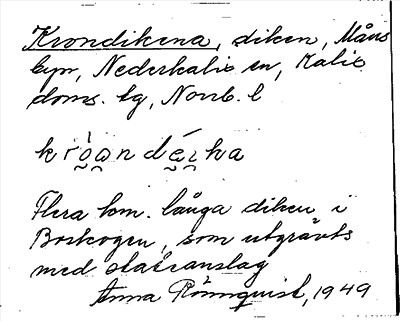 Krondikena, diken, Måns
byn, Nederkalix sn, Kalix
doms. tg, Norrb. l
kròandéika
Flera km. långa diken i
Boskogen, som utgrävts
med statsanslag
Anna Rönnquist, 1949